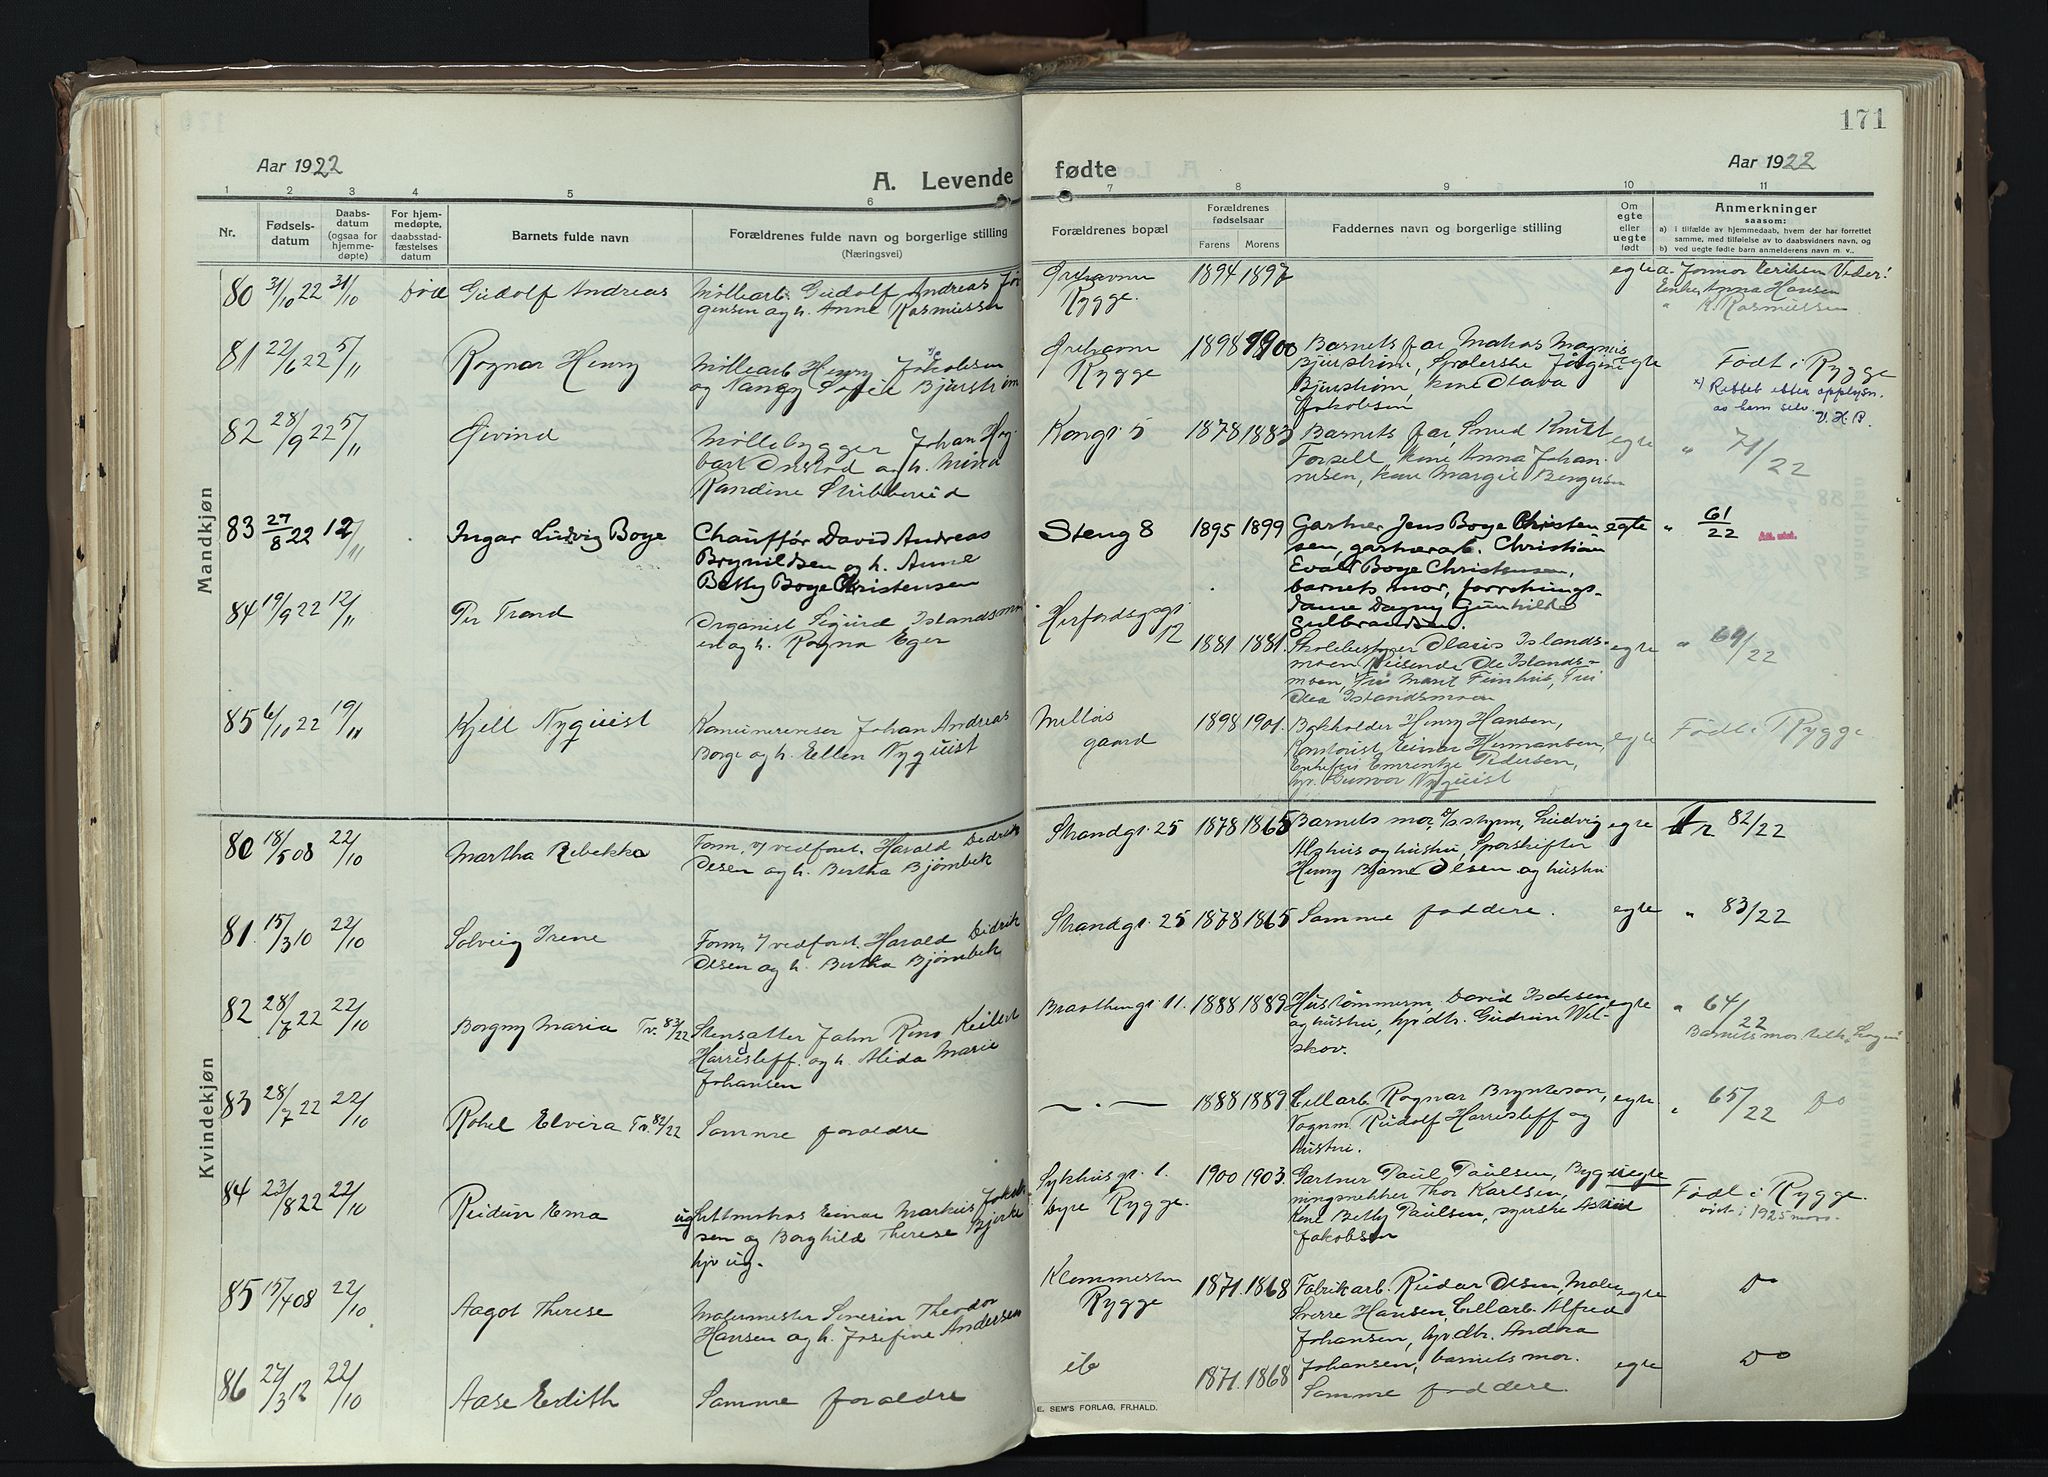 171
Aar 1922
Aar 1922
A. Levende fødte
1 2 3 4 5 6 7 8 9 10 11
Nr.
Fødsels-
datum
Daabs-
datum
(ogsaa for
hjemme-
døpte)
For hjem-
medøpte,
daabsstad-
fæstelses
datum
Barnets fulde navn
Forældrenes fulde navn og borgerlige stilling
(Næringsvei)
Forældrenes bopæl
Forældrenes
fødselsaar
Farens Morens
Faddernes navn og borgerlige stilling
Om
egte
eller
uegte
født
Anmerkninger
saasom:
a) i tilfælde av hjemmedaab, hvem der har forrettet
samme, med tilføielse av to daabsvidners navn, og
b) ved uegte fødte barn anmelderens navn m. v.
Mandkjøn
80 31/10 22 31/10 Død Gudolf Andreas
Møllearb. Gudolf Andreas Jør
gensen og h. Anne Rasmussen
Rygge.
1894 1897
egte
Anna Hansen
Rasmussen
81 22/6 22 5/11 Ragnar Henry
Møllearb. Henry Jakobsen
og Nangy Sofie Bjurstrøm
Rygge
1898 1900
Barnets far, Matros Magnus
Bjurstrøm,
Bjurstrøm, kone Olava
Jakobsen
egte
Født i Rygge
x) Rettet efter opplysn.
av ham selv.
V. H. P.
82 28/9 22 5/11 Øivind
Møllebygger Johan
og h. Mina
Randine
Kongsgt. 5
1878 1883
Barnets far, Smed Knut
Forsell, kone Anna Johan-
nesen, kone Margit Bergersen
egte
" 71/22
83 27/8 22 12/11 Ingar Ludvig Boye
Chauffør David Andreas
Brynildsen og h. Anne
Betty Boye Christensen
Steng 8
1895 1899
Gartner Jens Boye Christen
sen, gartnerarb. Christian
Evald Boye Christensen,
barnets mor, forretnings-
dame Dagny Gunhilde
Gulbrandsen.
egte
" 61/22
84 19/9 22 12/11 Per Trond
Organist Sigurd Islandsmo
en og h. Ragna Eger
Herfordsgt.
12
1881 1881
Skolebestyrer Olaus Islands-
moen, Reisende Ole Islands-
moen, Fru Marit Finhus, Fru
Olea Islandsmoen
egte
" 69/22
85 6/10 22 19/11 Kjell Nyquist
Johan Andreas
Borge og h. Ellen Nyquist
Melløs
gaard
1898 1901.
Bokholder Henry Hansen,
Kontorist Einar Hermansen,
Enkefru Emrentze Pedersen,
Gunvor Nyquist
egte
Født i Rygge
Kvindekjøn
80 18/5 08 22/10 Martha Rebekka
Form. v/ vedforet. Harald Didrik
Olsen og h. Bertha Bjørnbek
Strandgt. 25
1878 1865
Barnets mor, Ludvig
og hustru, Sporskifter
Henry Bjarne Olsen og hustru
egte
Nr 82/22
81. 15/3 10 22/10 Solveig Irene
Form. v/ vedforet. Harald Didrik
Olsen og h. Bertha Bjørnbek
Strandgt. 25
1878 1865
Samme faddere.
egte
" 83/22
82 28/7 22 22/10 Borgny Maria Tv. 83/22
Stensætter John Reno
Harrisleff og h. Alida Marie
Johansen
Braathengt. 11.
1888 1889
Hustømmerm. David Isaksen
og hustru, Gudrun Wel-
skov.
egte
" 64/22
83 28/7 22 22/10 Rakel Elvira Tv. 82/22
Samme forældre
— . —
1888 1889
Cellarb. Ragnar Brynteson,
Vognm. Rudolf Harrisleff og
hustru.
egte
" 65/22 Do
84 23/8 22 22/10 Reidun Ema
ug Lettmatros Einar Markus Jakob
sen og Borghild Therese Bjerke
hjv ug.
Sykhusgt. 1.
Dyre Rygge.
1900 1903.
Gartner Paul Paulsen, Byg
ningsnekker Thor Karlsen,
Kone Betty Paulsen, syerske Astrid
Jakobsen
uegte
Født i Rygge.
85 15/4 08 22/10 Aagot Therese
Malermester Severin Theodor
Hansen og h. Josefine Andersen
Rygge
1871. 1868
Fabrikarb. Reidar Olsen, Maler
Sverre Hansen, Cellarb. Alfred
Johansen, hjvdtr. Andrea
Johansen, barnets mor.
egte
Do
86 27/3 12 22/10 Aase Edith
Samme forældre
ib
1871. 1868
Samme faddere.
egte
Do
E. SEM'S FORLAG, FR.HALD.